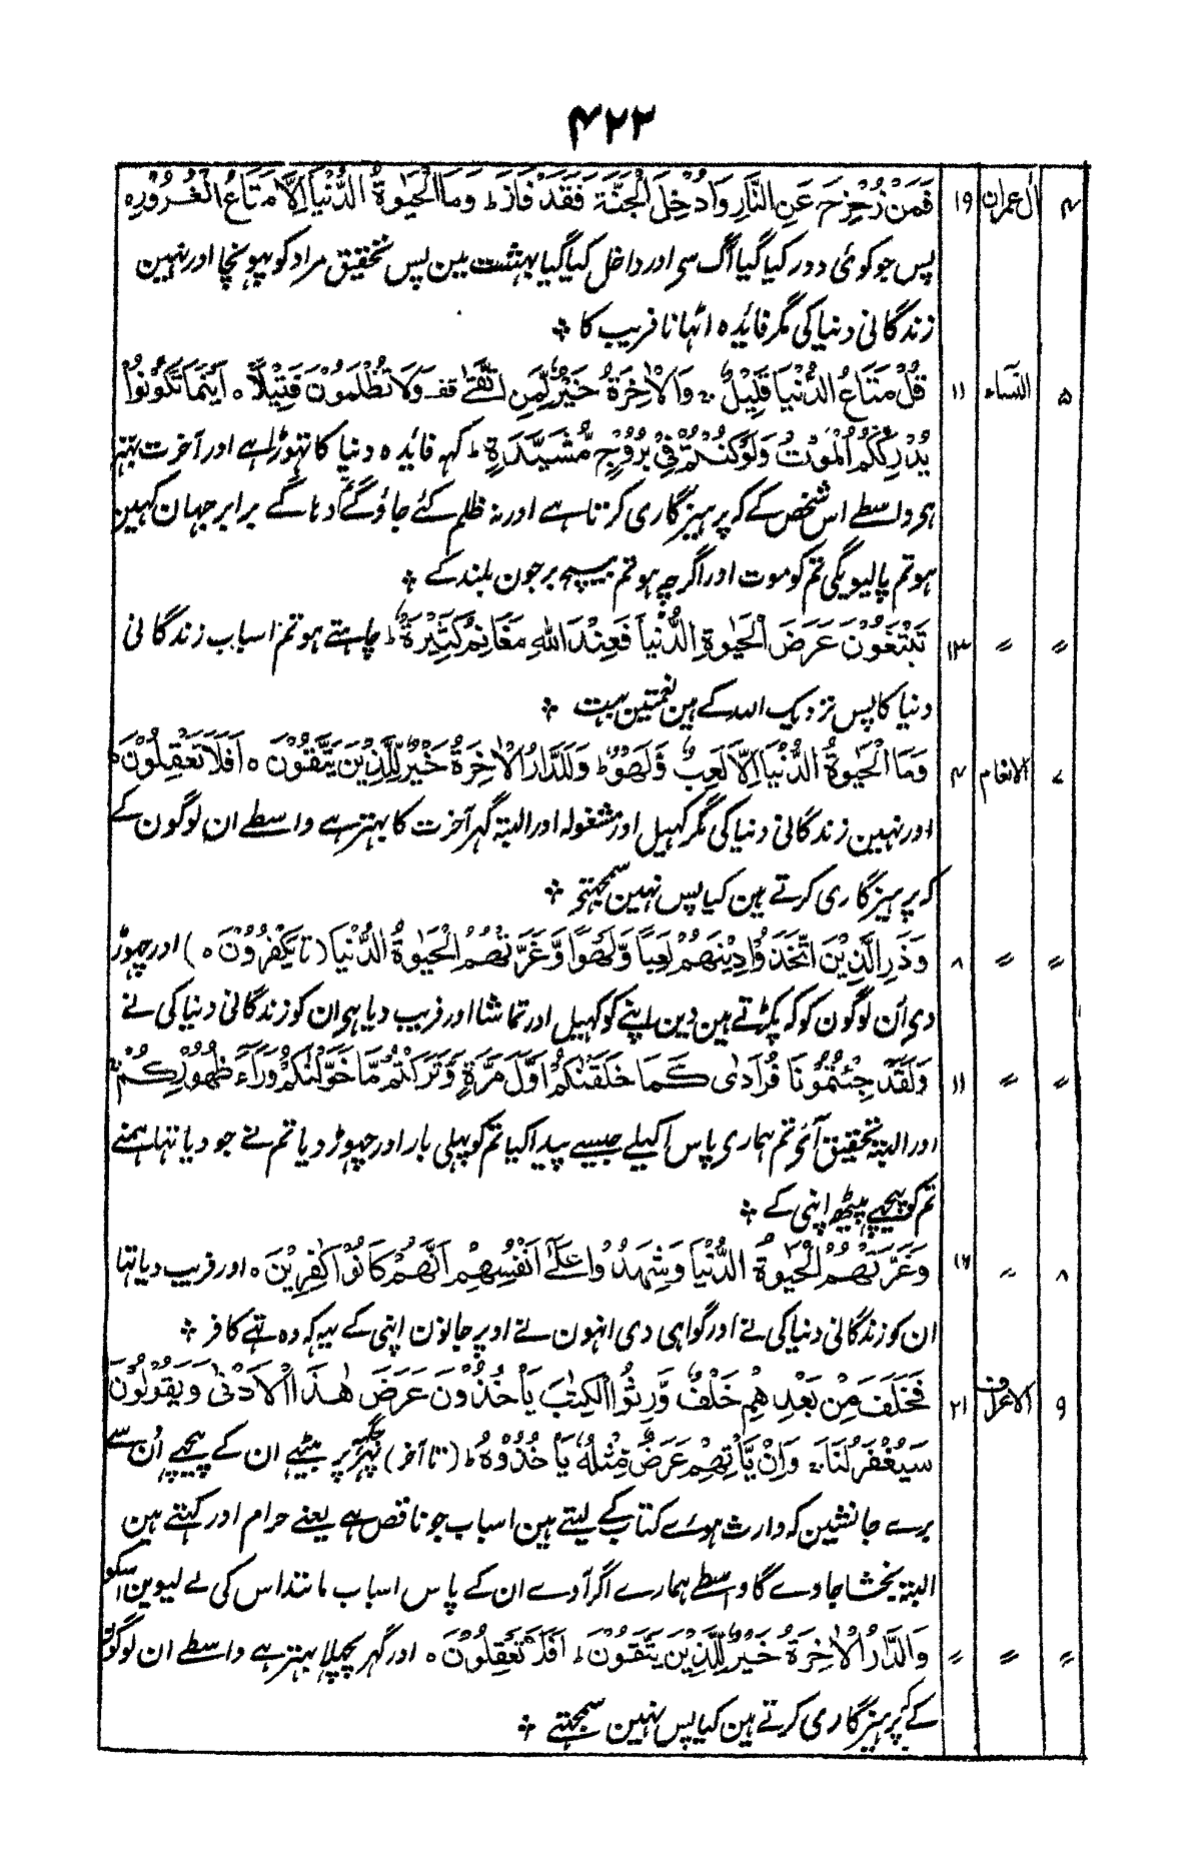 ۴۲۲
۴ اٰل عمران ۱۹ فَمَنْ زُحْزِحَ عَنِ النَّارِ وَاُدْخِلَ الْجَنَّةَ فَقَدْ فَازَ ط وَمَا الْحَيٰوةُ الدُّنْيَا اِلَّا مَتَاعُ الْغُرُوْرِ ه
پس جو کوئی دور کیا گیا آگ سے اور داخل کیا گیا بہشت مین پس تحقیق مراد کو پہونچا اور نہین
زندگانی دنیا کی مگر فائدہ اٹھانا فریب کا ؞
۵ النساء ۱۱ قُلْ مَتَاعُ الدُّنْيَا قَلِيْلٌ ۚ وَالْاٰخِرَةُ خَيْرٌ لِّمَنِ اتَّقٰى قف وَلَا تُظْلَمُوْنَ فَتِيْلًا ه اَيْنَمَا تَكُوْنُوْا
يُدْرِكْكُّمُ الْمَوْتُ وَلَوْ كُنْتُمْ فِيْ بُرُوْجٍ مُّشَيَّدَةٍ ط کہہ فائدہ دنیا کا تہوڑا ہے اور آخرت بہتر
ہی واسطے اس شخص کے کہ پرہیزگاری کرتا ہے اور نہ ظلم کئے جاؤگے تاگے برابر جہان کہین
ہو تم پالیویگی تم کو موت اور اگرچہ ہو تم بیچ برجون بلند کے ؞
〃 〃 ۱۳ تَبْتَغُوْنَ عَرَضَ الْحَيٰوةِ الدُّنْيَا فَعِنْدَ اللهِ مَغَانِمُ كَثِيْرَةٌ ط چاہتے ہو تم اسباب زندگانی
دنیا کا پس نزدیک اللہ کے ہین نعمتین بہت ؞
۷ الانعام ۴ وَمَا الْحَيٰوةُ الدُّنْيَا اِلَّا لَعِبٌ وَّلَهْوٌ ط وَلَلدَّارُ الْاٰخِرَةُ خَيْرٌ لِّلَّذِيْنَ يَتَّقُوْنَ ه اَفَلَا تَعْقِلُوْنَ ه
اور نہین زندگانی دنیا کی مگر کہیل اور مشغولہ اور البتہ گہر آخرت کا بہتر ہے واسطے ان لوگون کے
کہ پرہیزگاری کرتے ہین کیا پس نہین سمجہتے ؞
〃 〃 ۸ وَذَرِ الَّذِيْنَ اتَّخَذُوْا دِيْنَهُمْ لَعِبًا وَّلَهْوًا وَّغَرَّتْهُمُ الْحَيٰوةُ الدُّنْيَا (تا يَكْفُرُوْنَ ه) اور چہوڑ
دی اُن لوگون کو کہ پکڑتے ہین دین اپنے کو کہیل اور تماشا اور فریب دیا ہی ان کو زندگانی دنیا کی نے
〃 〃 ۱۱ وَلَقَدْ جِئْتُمُوْنَا فُرَادٰى كَمَا خَلَقْنٰكُمْ اَوَّلَ مَرَّةٍ وَّتَرَكْتُمْ مَّا خَوَّلْنٰكُمْ وَرَآءَ ظُهُوْرِكُمْ ۚ
اور البتہ تحقیق آئے تم ہماری پاس اکیلے جیسے پیدا کیا تم کو پہلی بار اور چہوڑ دیا تم نے جو دیا تہا ہمنے
تم کو پیچہے پیٹھ اپنی کے ؞
۸ 〃 ۱۶ وَغَرَّتْهُمُ الْحَيٰوةُ الدُّنْيَا وَشَهِدُوْا عَلٰى اَنْفُسِهِمْ اَنَّهُمْ كَانُوْا كٰفِرِيْنَ ه اور فریب دیا تہا
ان کو زندگانی دنیا کی نے اور گواہی دی انہون نے اوپر جانون اپنی کے یہہ کہ وہ تہے کافر ؞
۹ الاعراف ۲۱ فَخَلَفَ مِنْ بَعْدِهِمْ خَلْفٌ وَّرِثُوا الْكِتٰبَ يَأْخُذُوْنَ عَرَضَ هٰذَا الْاَدْنٰى وَيَقُوْلُوْنَ
سَيُغْفَرُ لَنَا ۚ وَاِنْ يَّأْتِهِمْ عَرَضٌ مِّثْلُهٗ يَأْخُذُوْهُ ط (تا آخر) پر بیٹہے ان کے پیچہے اُن سے
برے جانشین کہ وارث ہوئے کتاب کے لیتے ہین اسباب جو ناقص ہے یعنے حرام اور کہتے ہین
البتہ بخشا جاوے گا واسطے ہمارے اگر آوے ان کے پاس اسباب مانند اس کی لے لیوین اسکو
〃 〃 〃 وَالدَّارُ الْاٰخِرَةُ خَيْرٌ لِّلَّذِيْنَ يَتَّقُوْنَ ط اَفَلَا تَعْقِلُوْنَ ه اور گہر پچہلا بہتر ہے واسطے ان لوگون
کے کہ پرہیزگاری کرتے ہین کیا پس نہین سمجہتے ؞